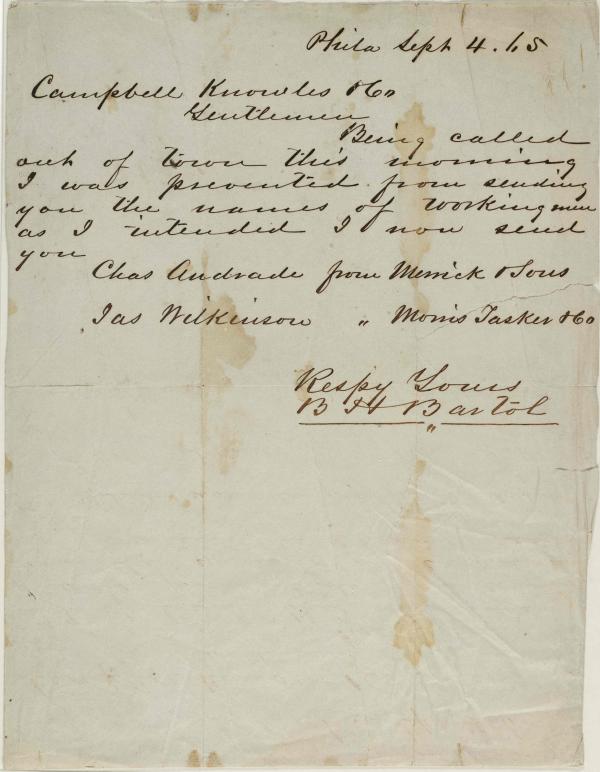 Phila Sept 4. 65
Campbell Knowles & Co
Gentlemen
Being called
out of town this morning
I was prevented from sending
you the names of workingmen
as I intended I now send
you
Chas Andrade from Merrick & Sons
Jas Wilkinson " Morris Tasker & Co
Respy Yours
B H Bartol
"